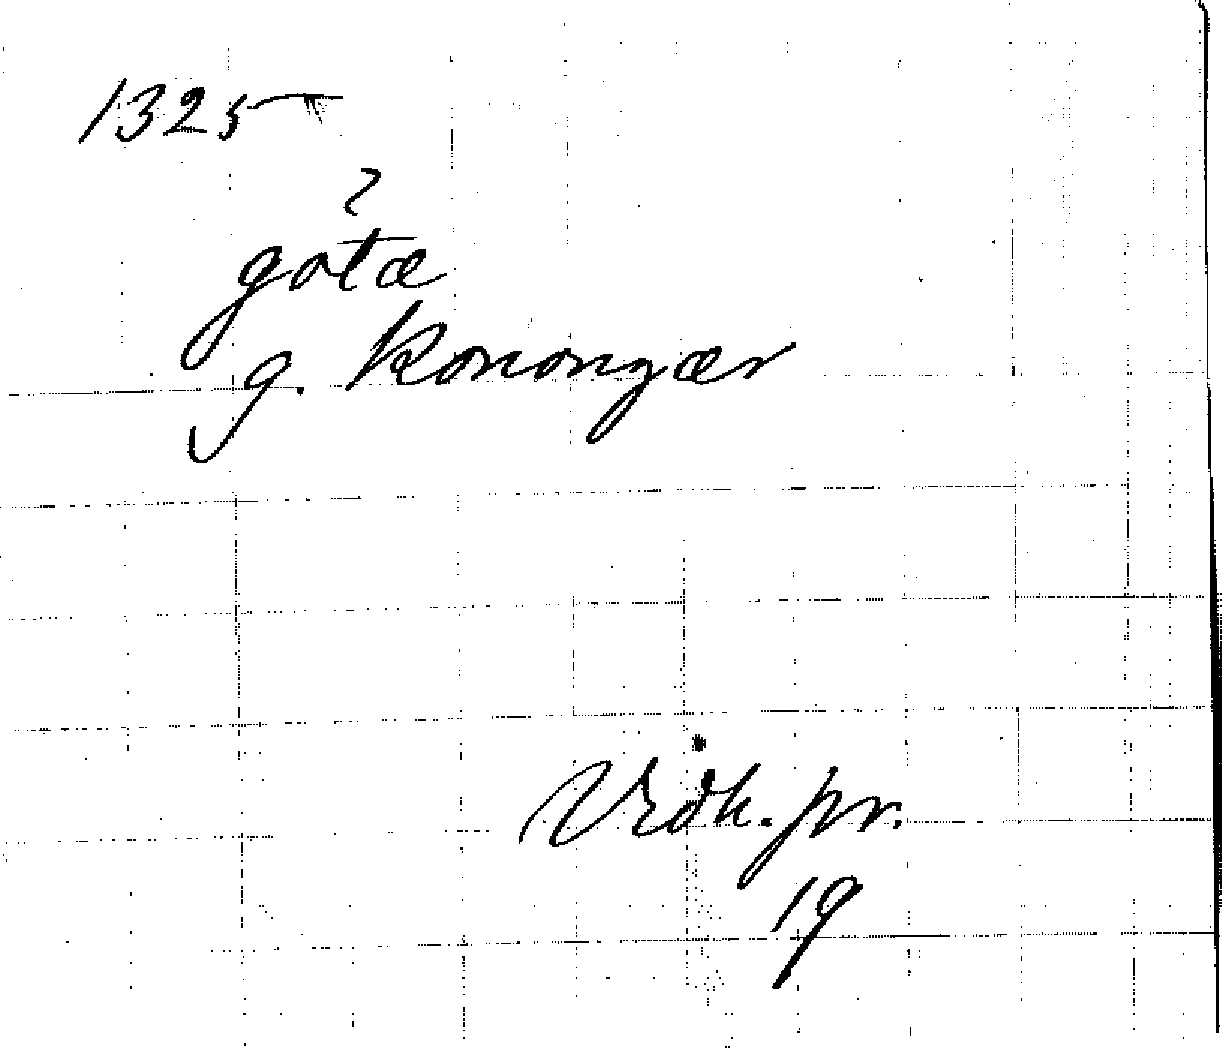 1325
?
gotæ
g. konongær
Vidh. pr.
19